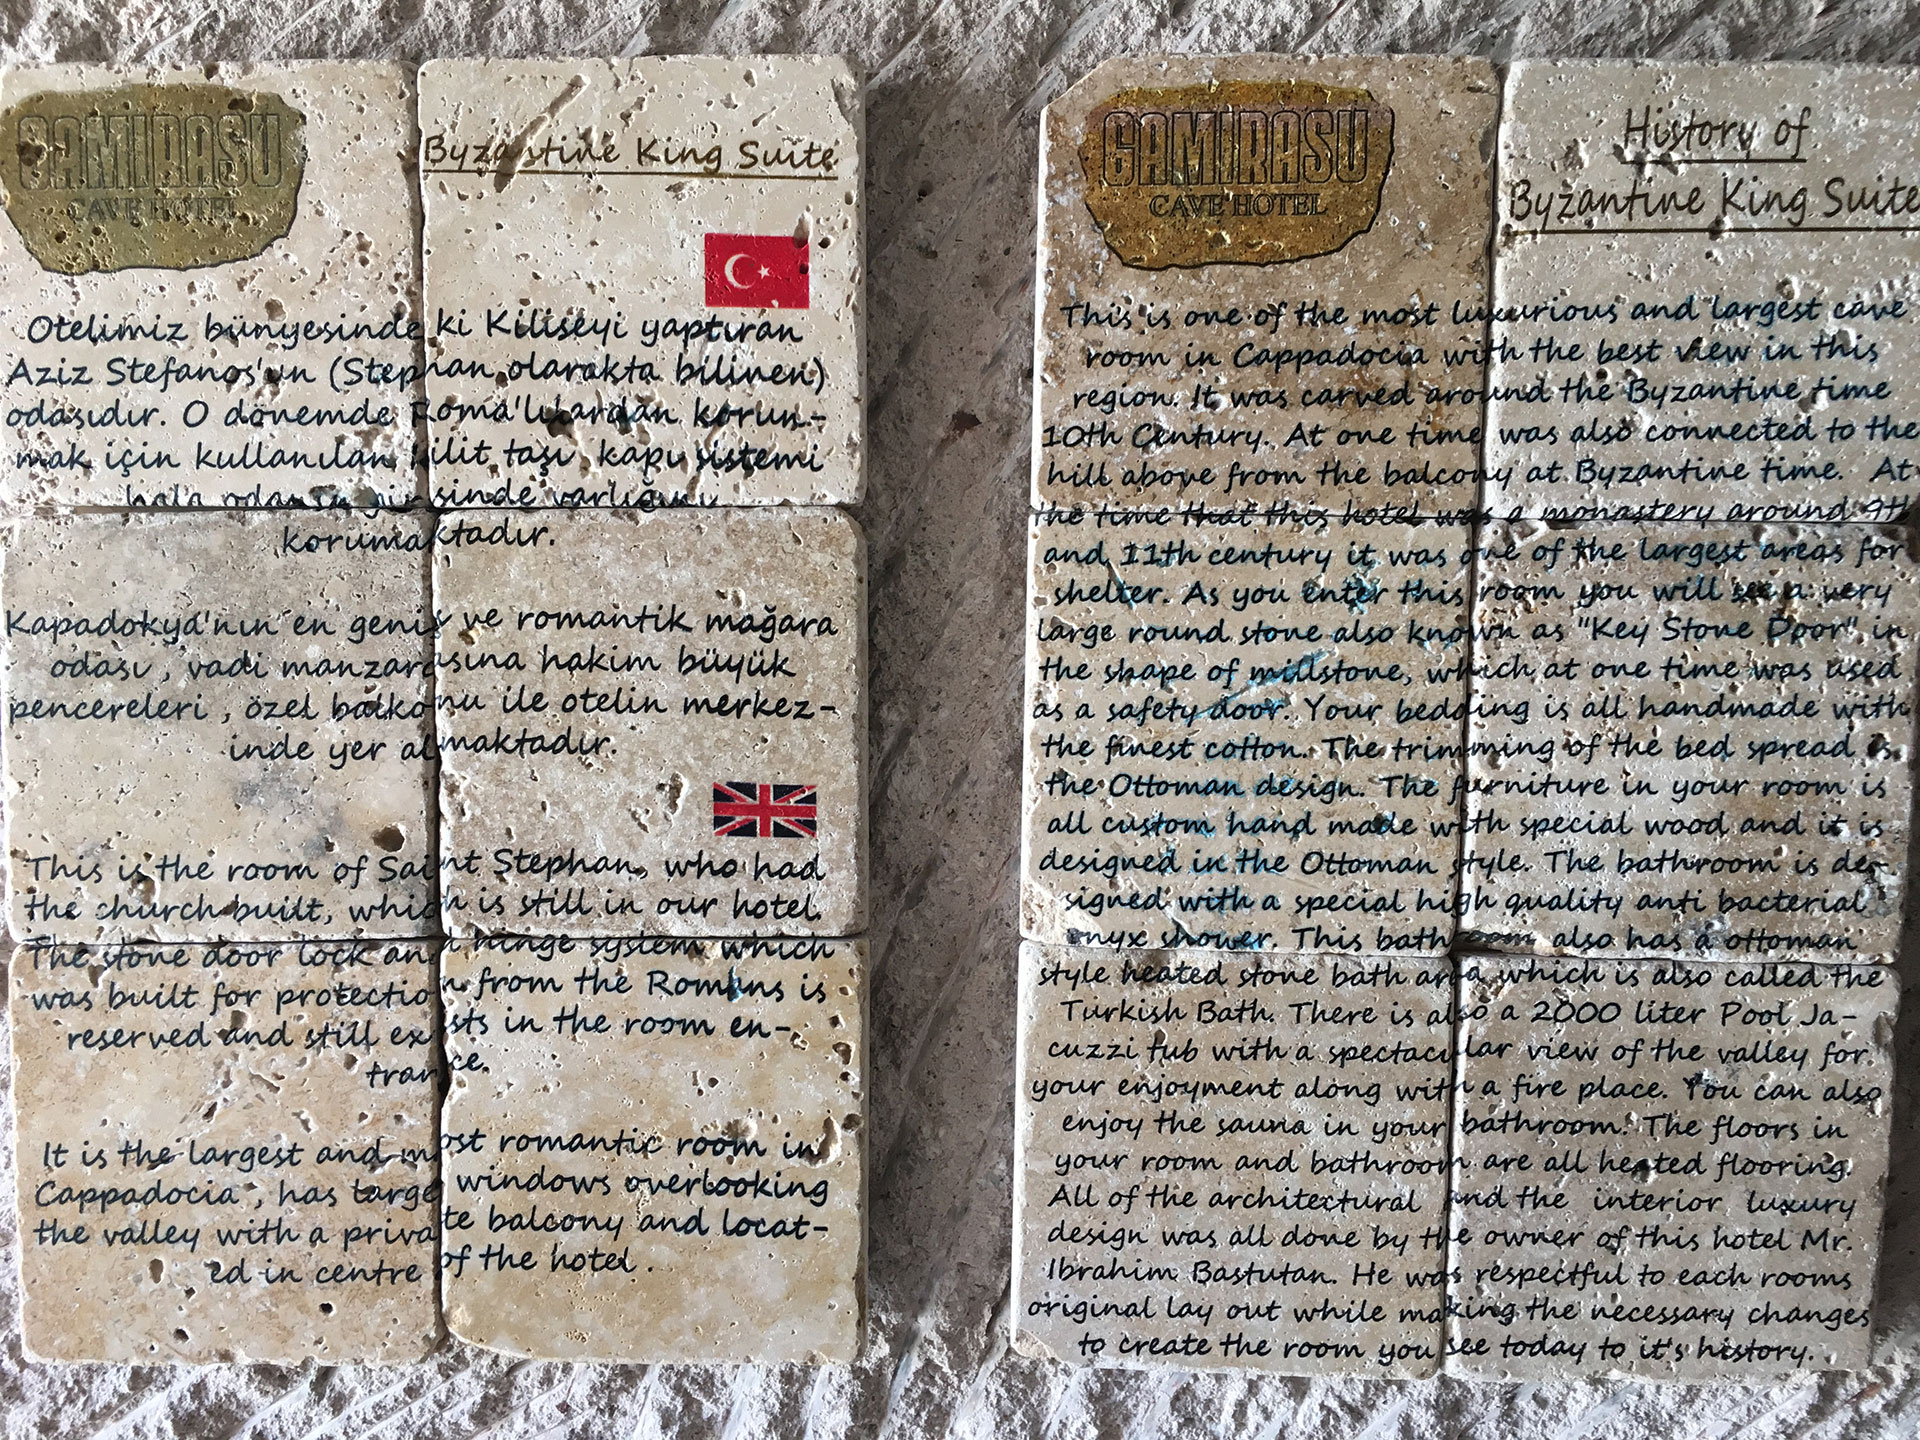 GAMIRASU
CAVE HOTEL
Byzantine King Suite
Otelimiz bünyesinde ki Kiliseyi yaptıran
Aziz Stefanos'un (Stephan olarakta bilinen)
odasıdır. O dönemde Roma'lılardan korun-
mak için kullanılan kilit taşı kapı sistemi
hala odanın girisinde varlığını
korumaktadır.
Kapadokya'nın en geniş ve romantik mağara
odası, vadi manzarasına hakim büyük
pencereleri, özel balkonu ile otelin merkez-
inde yer almaktadır.
This is the room of Saint Stephan, who had
the church built, which is still in our hotel.
The stone door lock and hinge system which
was built for protection from the Romans is
reserved and still exsts in the room en-
trance.
It is the largest and most romantic room in
Cappadocia, has large windows overlooking
the valley with a private balcony and locat-
ed in centre of the hotel.
GAMIRASU
CAVE HOTEL
History of
Byzantine King Suite
This is one of the most luxurious and largest cave
room in Cappadocia with the best view in this
region. It was carved around the Byzantine time
10th Century. At one time was also connected to the
hill above from the balcony at Byzantine time. At
the time that this hotel was a monastery around 9th
and 11th century it was one of the largest areas for
shelter. As you enter this room you will see a very
large round stone also known as "Key Stone Door" in
the shape of millstone, which at one time was used
as a safety door. Your bedding is all handmade with
the finest cotton. The trimming of the bed spread is
the Ottoman design. The furniture in your room is
all custom hand made with special wood and it is
designed in the Ottoman style. The bathroom is de-
signed with a special high quality anti bacterial
onyx shower. This bathroom also has a ottoman
style heated stone bath area which is also called the
Turkish Bath. There is also a 2000 liter Pool Ja-
cuzzi tub with a spectacular view of the valley for
your enjoyment along with a fire place. You can also
enjoy the sauna in your bathroom. The floors in
your room and bathroom are all heated flooring.
All of the architectural and the interior luxury
design was all done by the owner of this hotel Mr.
Ibrahim Bastutan. He was respectful to each rooms
original lay out while making the necessary changes
to create the room you see today to it's history.